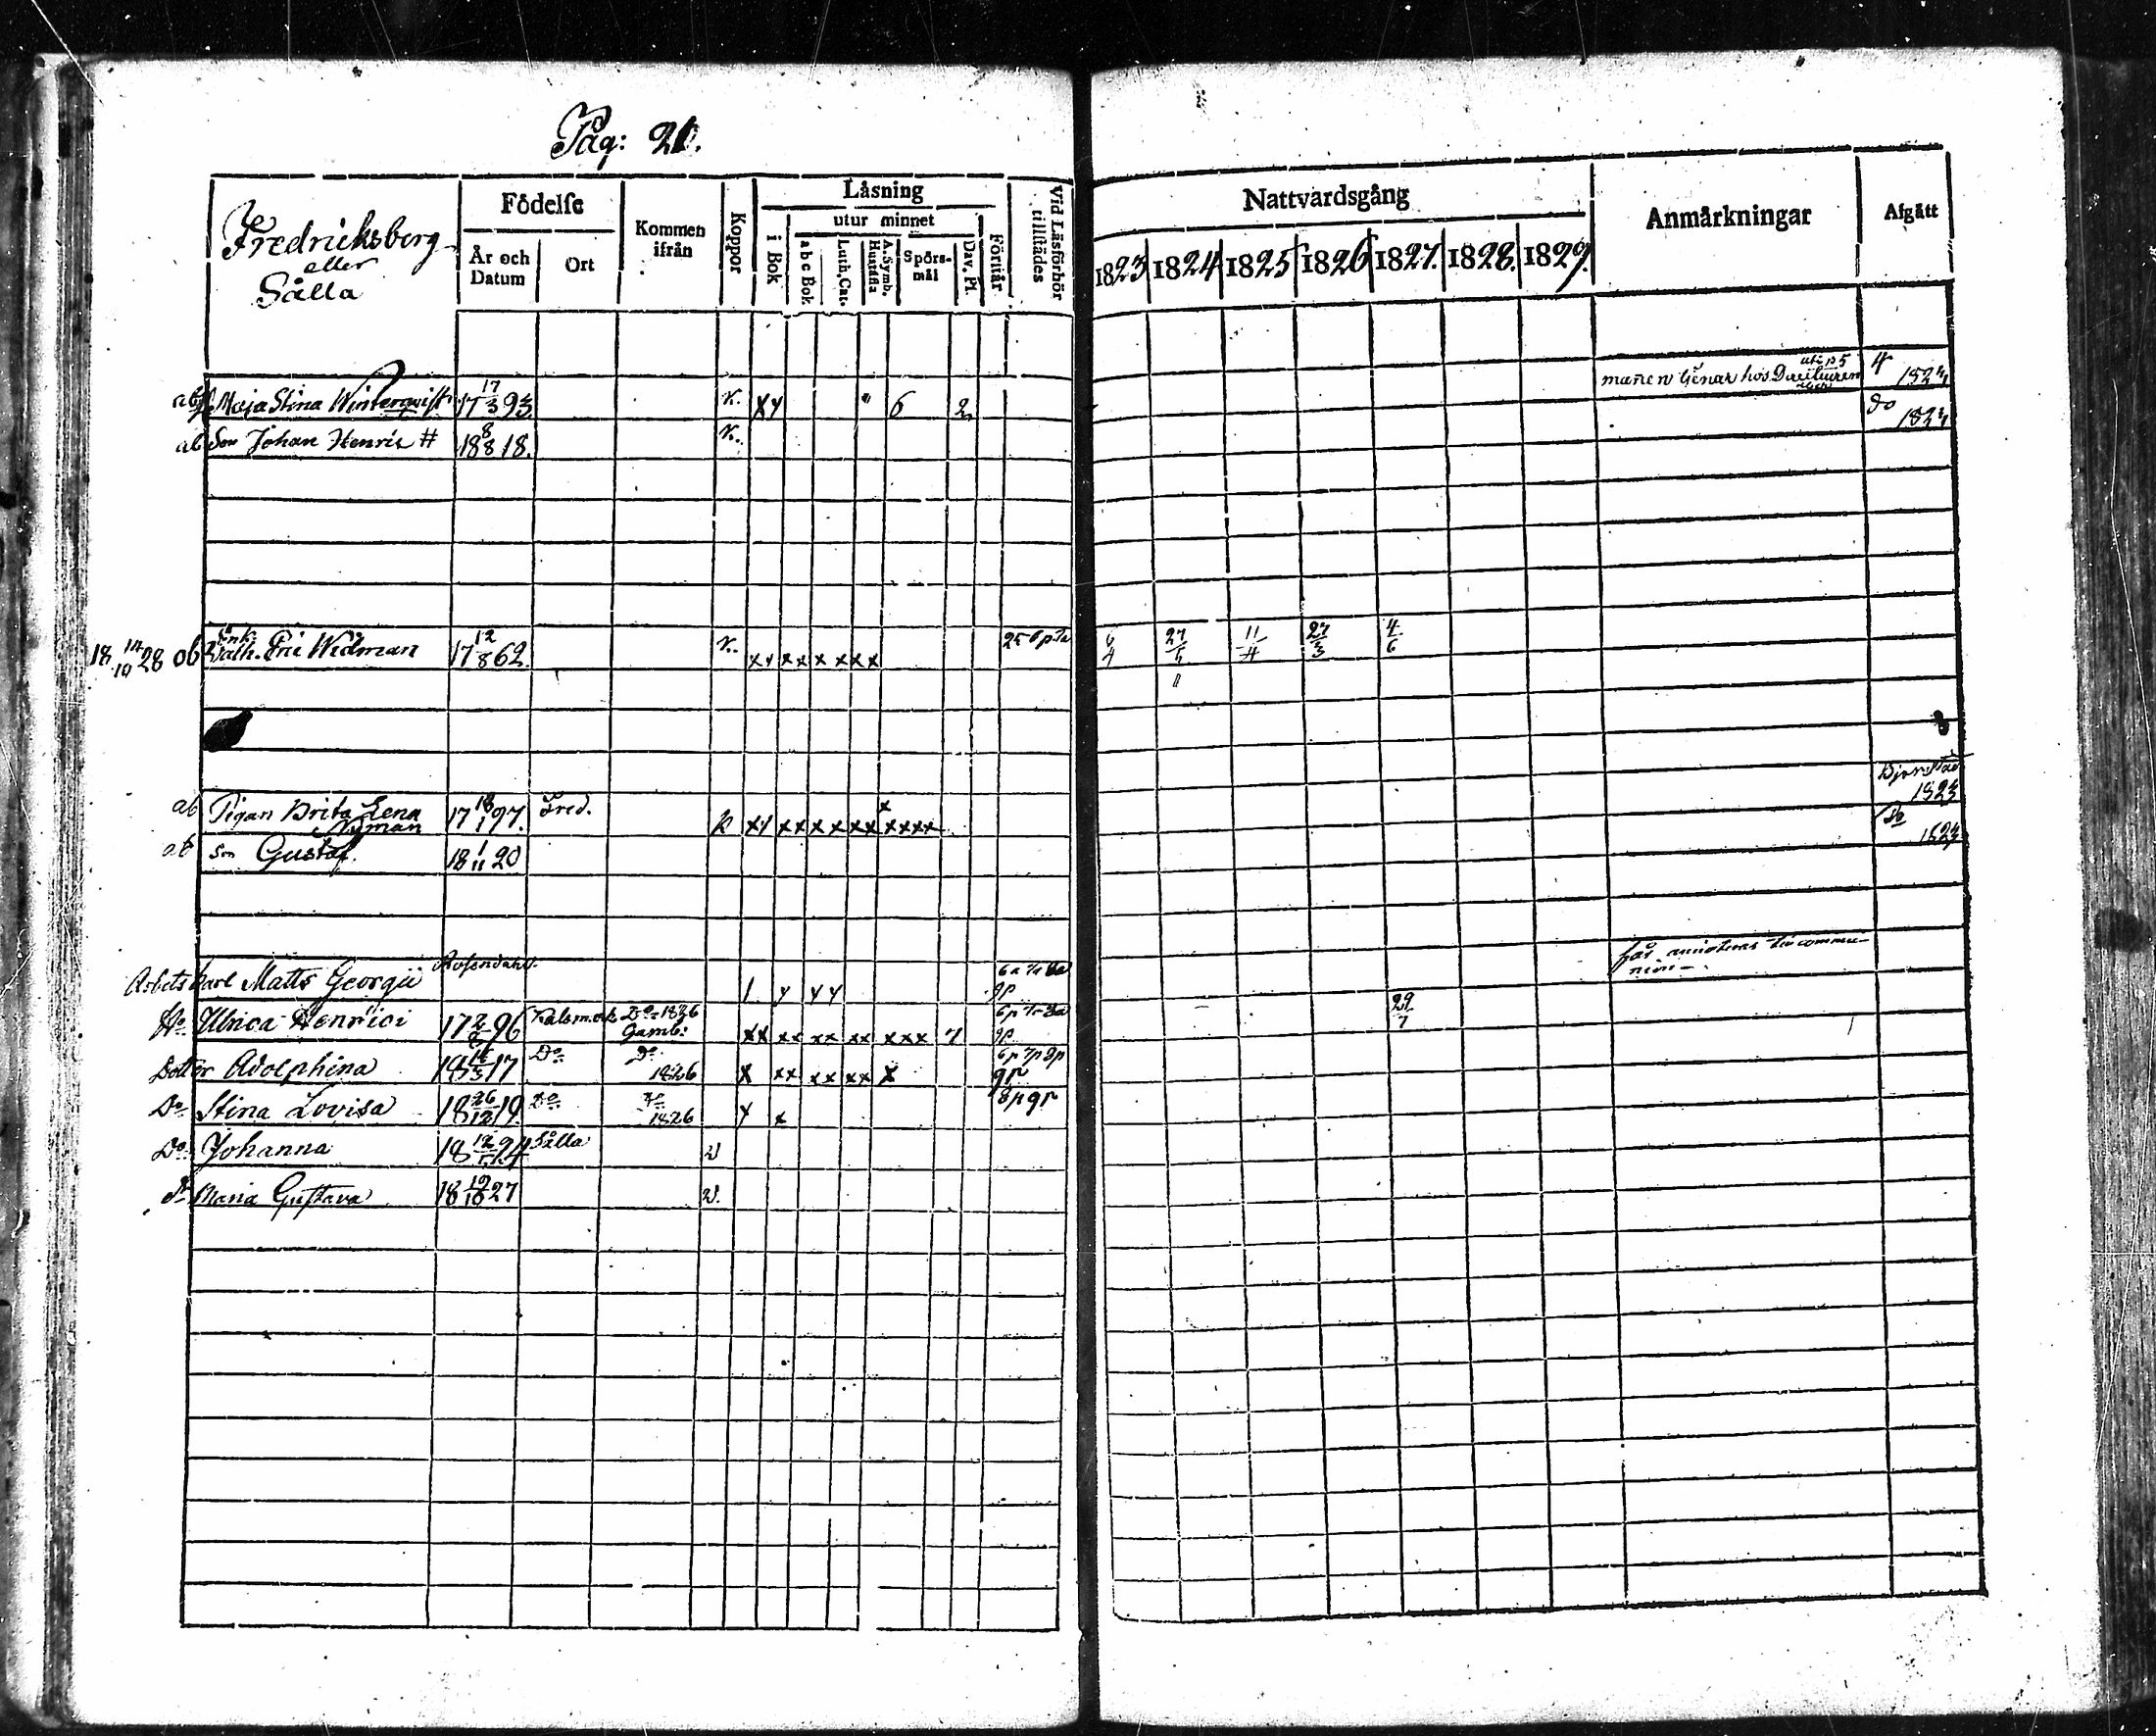 Pag: 20.
Fredricksberg
eller
Sålla
Födelse
År och Datum
Ort
Kommen ifrån
Koppor
Låsning
i Bok
utur minnet
abc Bok
Luth. Cat.
A. Symb. Hustafla
Spörsmål
Dav. Ps.
Förstår
Vid Läsförhör tillstädes
Nattvardsgång
1823 1824 1825 1826 1827. 1828. 1829.
Anmårkningar
Afgått
ab Maja Stina Winterqvist 17 17/3 93 K. 6 2 hos 4 1824
ab Son Johan Henric # 18 8/8 18. K. do 1824
18 28 ob Enk. Cath. Widman 17 12/8 62. K. xx xx x xxx 6/4 11/4 27/3 4/6
ab Pigan Brita Lena Nyman 17 18/1 97. Fred. k xy xx x x xx x xxxx
ab Son Gustaf. 18 1/11 20 Do
Arbets karl Matts Georgii
Ho Ulrica Henrici 17 96 Do 1826 Gamb: xx xx xx xx xxx 7 29/7
Dotter Adolphina 18 17 Do Do 1826 x xx xx xx x 6p 7p 8p 9p
Do Stina Lovisa 18 26/12 19 Do Do 1826 8p 9p
Do Johanna 18 24 Sålla v
Do Maria Gustava 18 19/10 27 v.